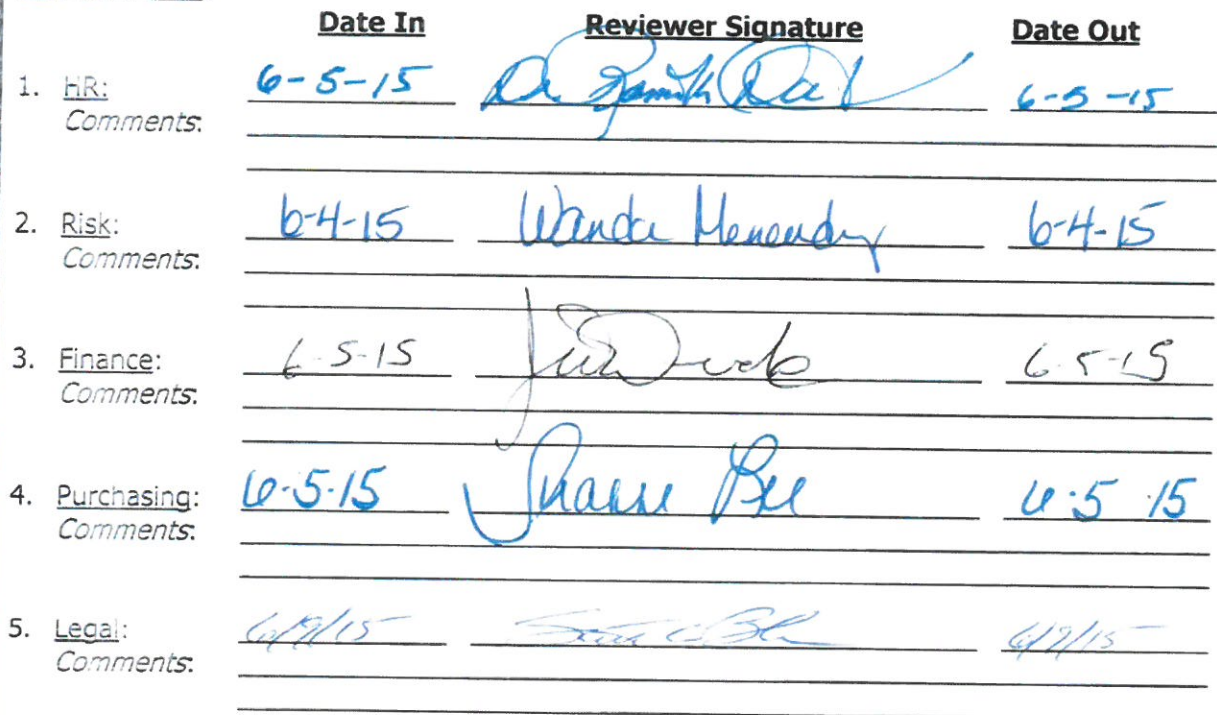 Date In Reviewer Signature Date Out
1. HR: 6-5-15 6-5-15
Comments:
2. Risk: 6-4-15 Wanda 6-4-15
Comments:
3. Finance: 6-5-15 6-5-15
Comments:
4. Purchasing: 6-5-15 6-5-15
Comments:
5. Legal: 6/9/15 6/9/15
Comments: